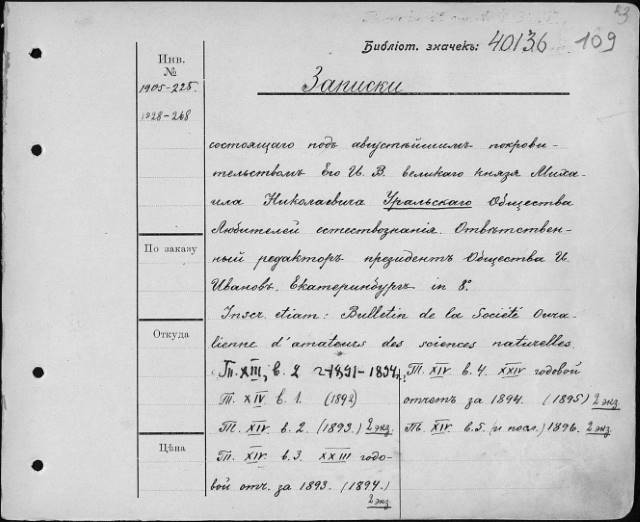 Библіот. значекъ: 40136 109
Инв.
№
1905-225.
1928-268
По заказу
Откуда
Цѣна
Записки
состоящаго подъ августѣйшимъ покрови-
тельствомъ Его И. В. великаго князя Миха-
ила Николаевича Уральскаго Общества
Любителей естествознанія. Отвѣтствен-
ный редакторъ президентъ Общества И.
Ивановъ. Екатеринбургъ in 8°.
Inscr. etiam: Bulletin de la Société Oura-
lienne d'amateurs des sciences naturelles.
Т. XIII, в. 2 1891-1894.
Т. XIV в. 1. (1892)
Т. XIV. в. 2. (1893.) 2 экз
Т. XIV. в. 3. XXIII годо-
вой отч. за 1893. (1894.)
2 экз
Т. XIV в. 4. XXIV годовой
отчетъ за 1894. (1895) 2 экз.
Тъ. XIV. в. 5. (и посл.) 1896. 2 экз